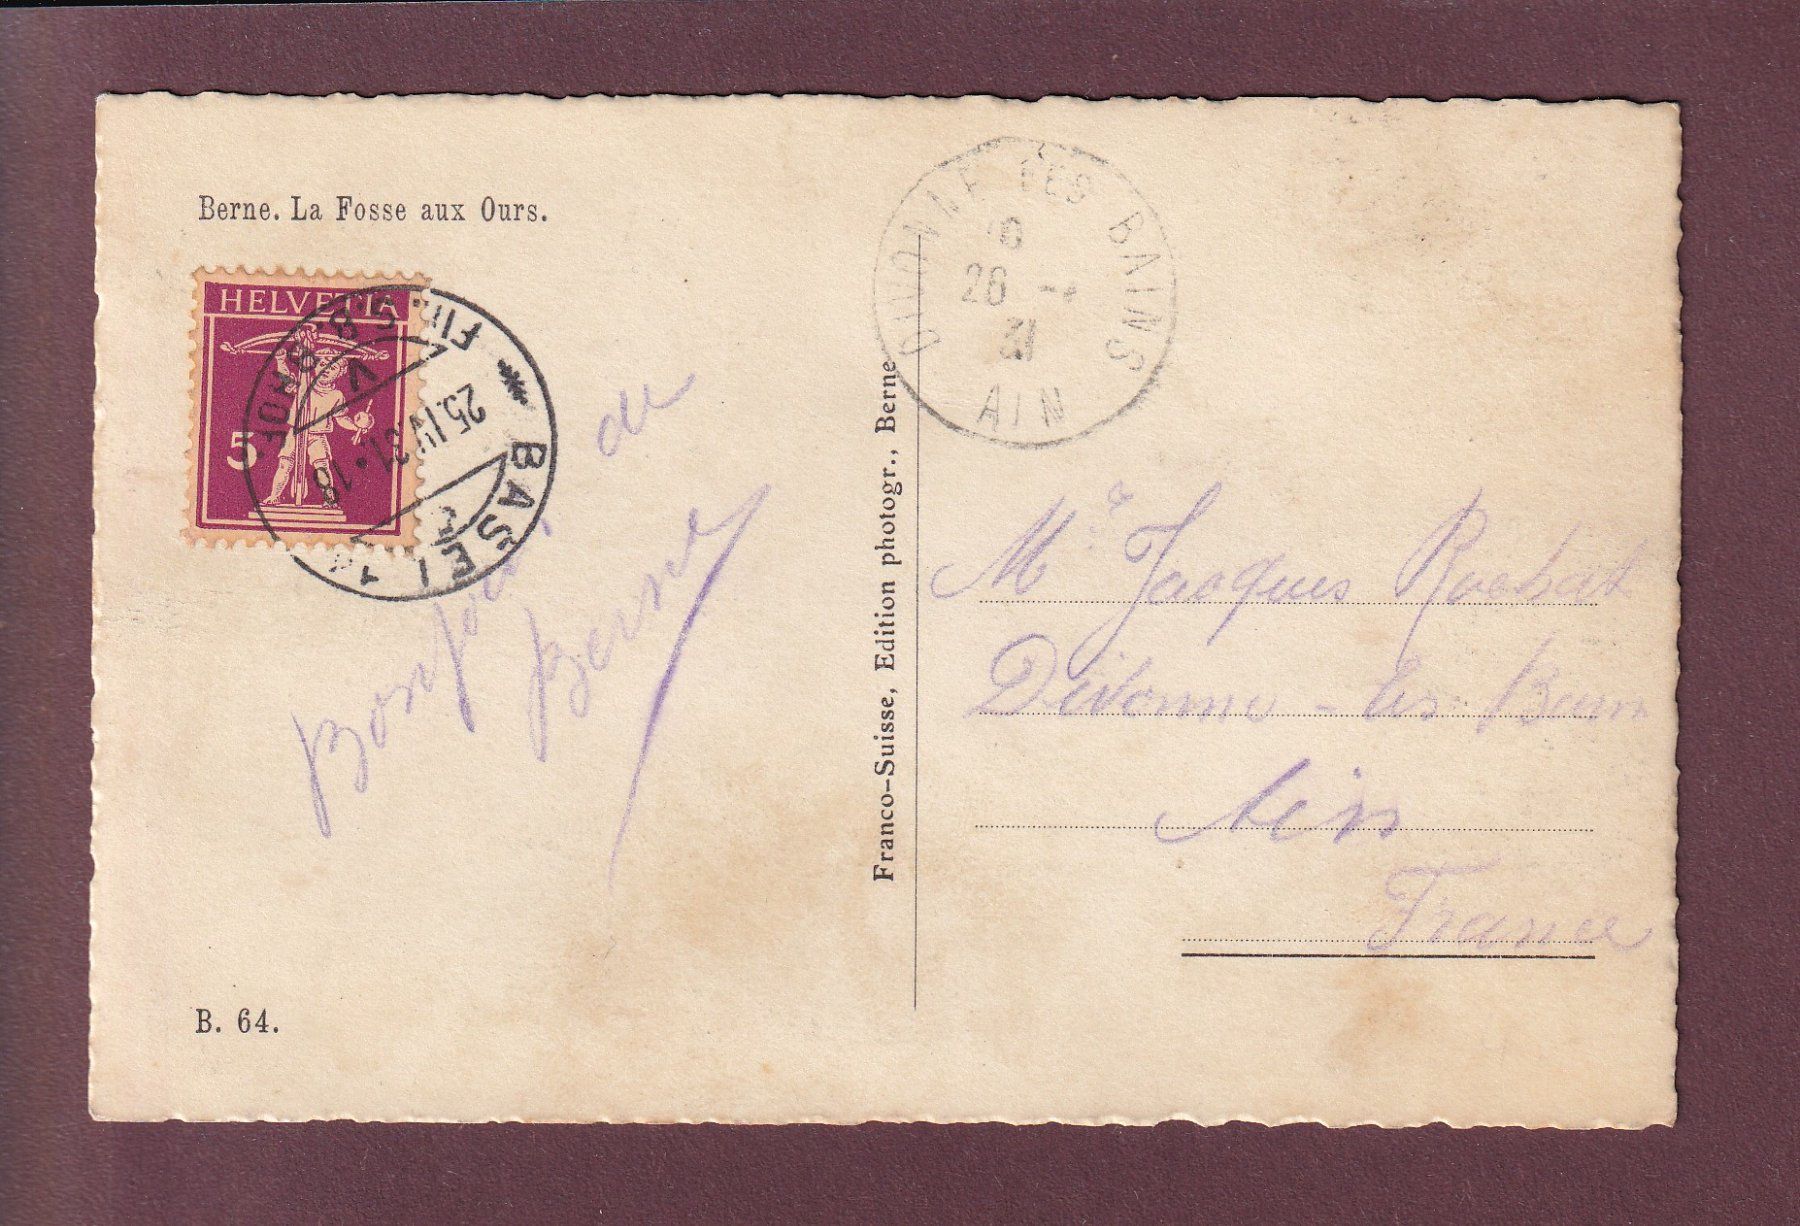 Berne. La Fosse aux Ours.
HELVETIA
5
BASEL 14
25.IV.31.18
V
DIVONNE LES BAINS
26 - 4
31
AIN
de
Bonjour
Berne
Franco-Suisse, Edition photogr., Berne
Mr Jacques Rochat
Divonne-les-Bains
Ain
France
B. 64.